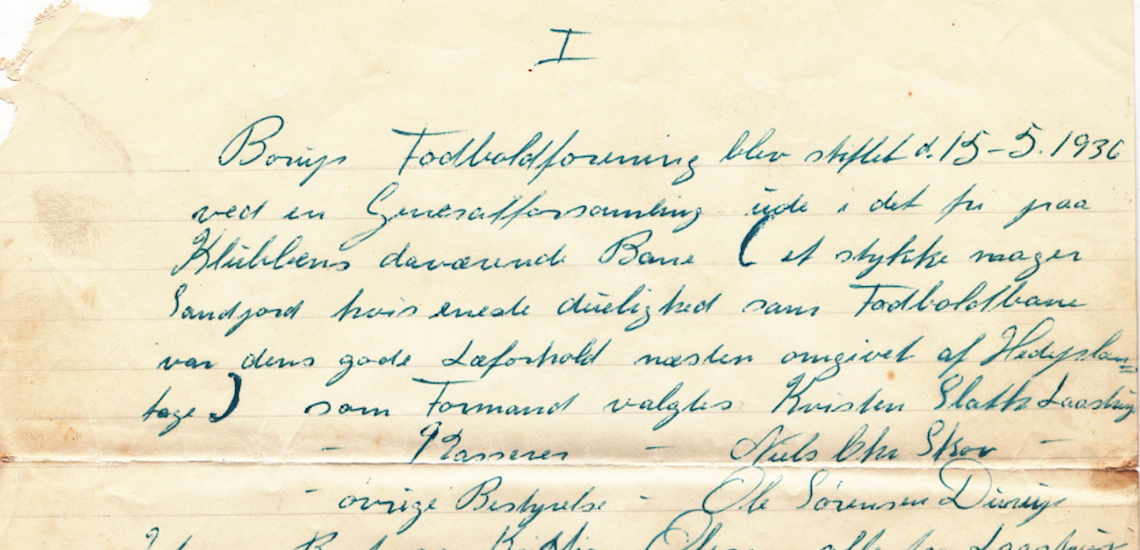 I
Borup Fodboldforening blev stiftet d. 15-5. 1936
ved en Generalforsamling ude i det fri paa
Klubbens daværende Bane ( et stykke mager
Sandjord hvis eneste duelighed som Fodboldbane
var dens gode Læforhold næsten omgivet af Hedeplan=
tage) som Formand valgtes Kristen Slath Laastrup
- Kasserer - Niels Chr Skov -
- øvrige Bestyrelse - Ole Sørensen